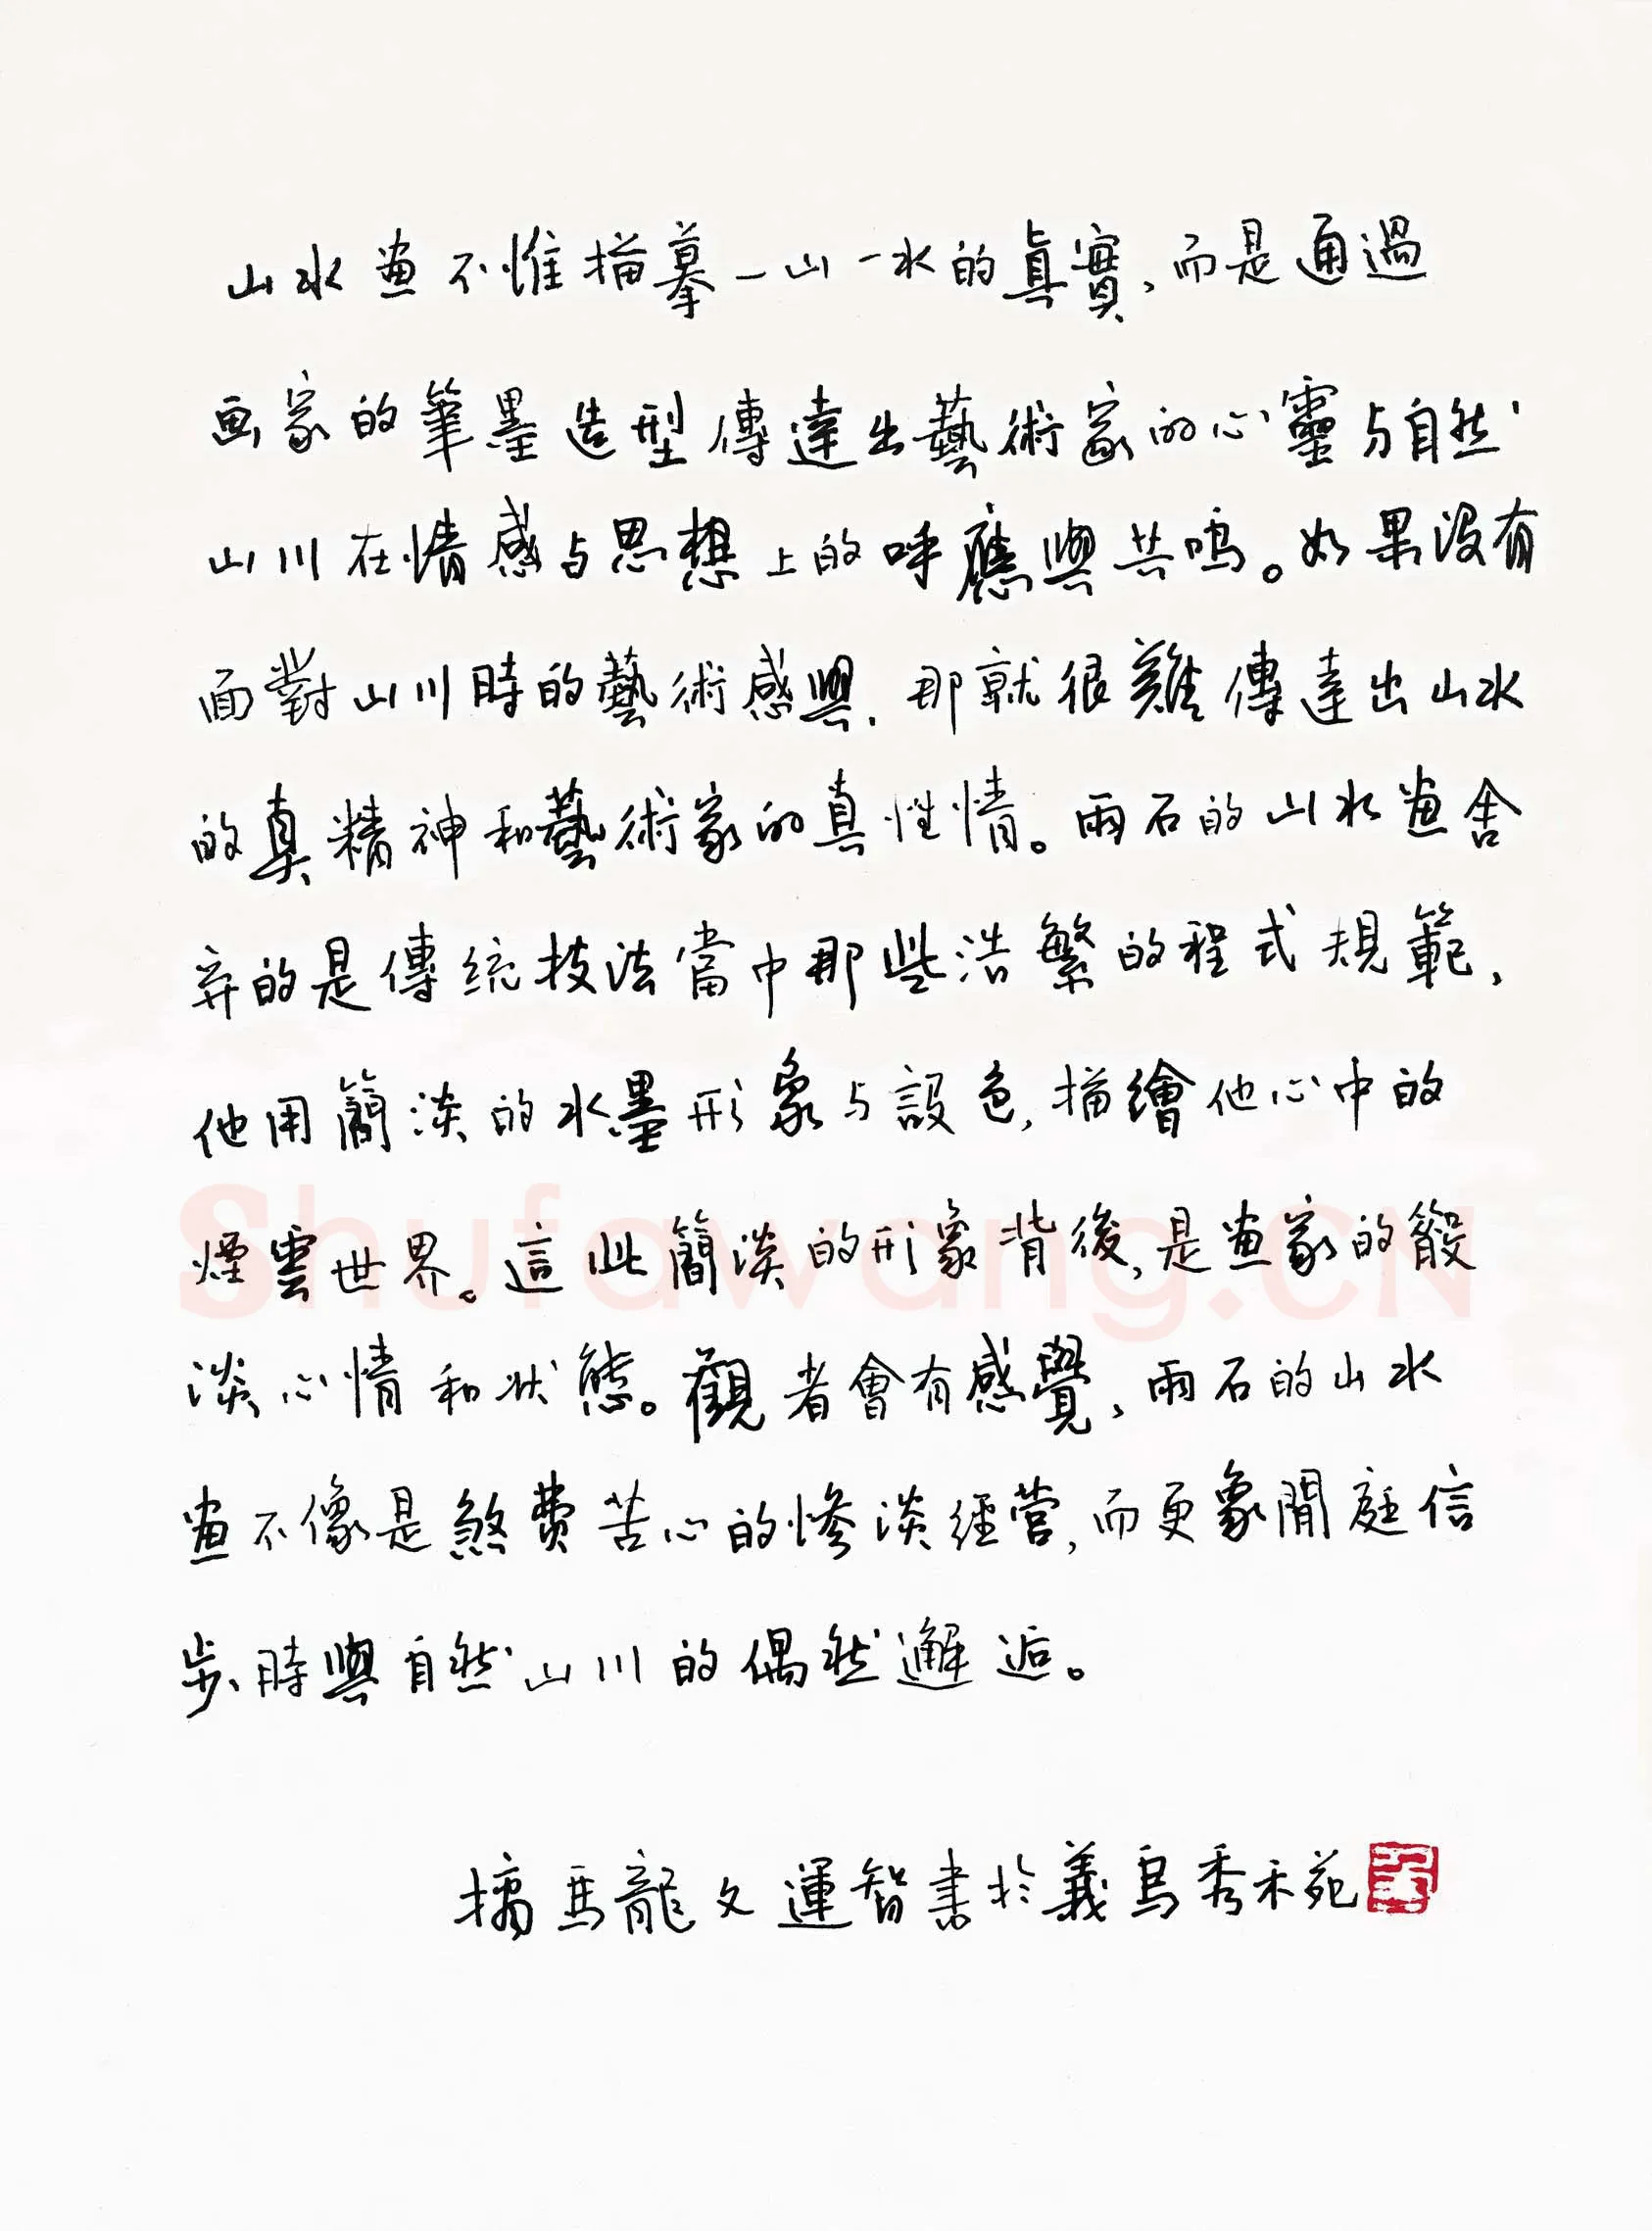 山水畫不惟描摹一山一水的真實,而是通過
画家的筆墨造型傳達出藝術家的心靈与自然
山川在情感与思想上的呼應與共鸣。如果没有
面對山川時的藝術感興.那就很難傳達出山水
的真精神和藝術家的真性情。雨石的山水畫舍
弃的是傳統技法當中那些浩繁的程式規範,
他用簡淡的水墨形象与設色,描繪他心中的
煙雲世界。這些簡淡的形象背後,是畫家的散
淡心情和状態。觀者會有感覺,雨石的山水
畫不像是煞费苦心的惨淡經营,而更象閒庭信
步時與自然山川的偶然邂逅。
摘馬龍文運智書於義烏秀禾苑
Shufawang.CN